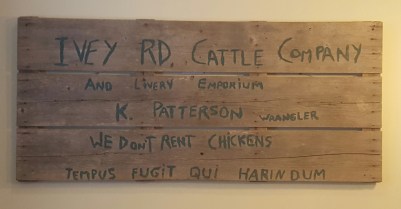 IVEY RD. CATTLE COMPANY
AND LIVERY EMPORIUM
K. PATTERSON WRANGLER
WE DON'T RENT CHICKENS
TEMPUS FUGIT QUI HARINDUM